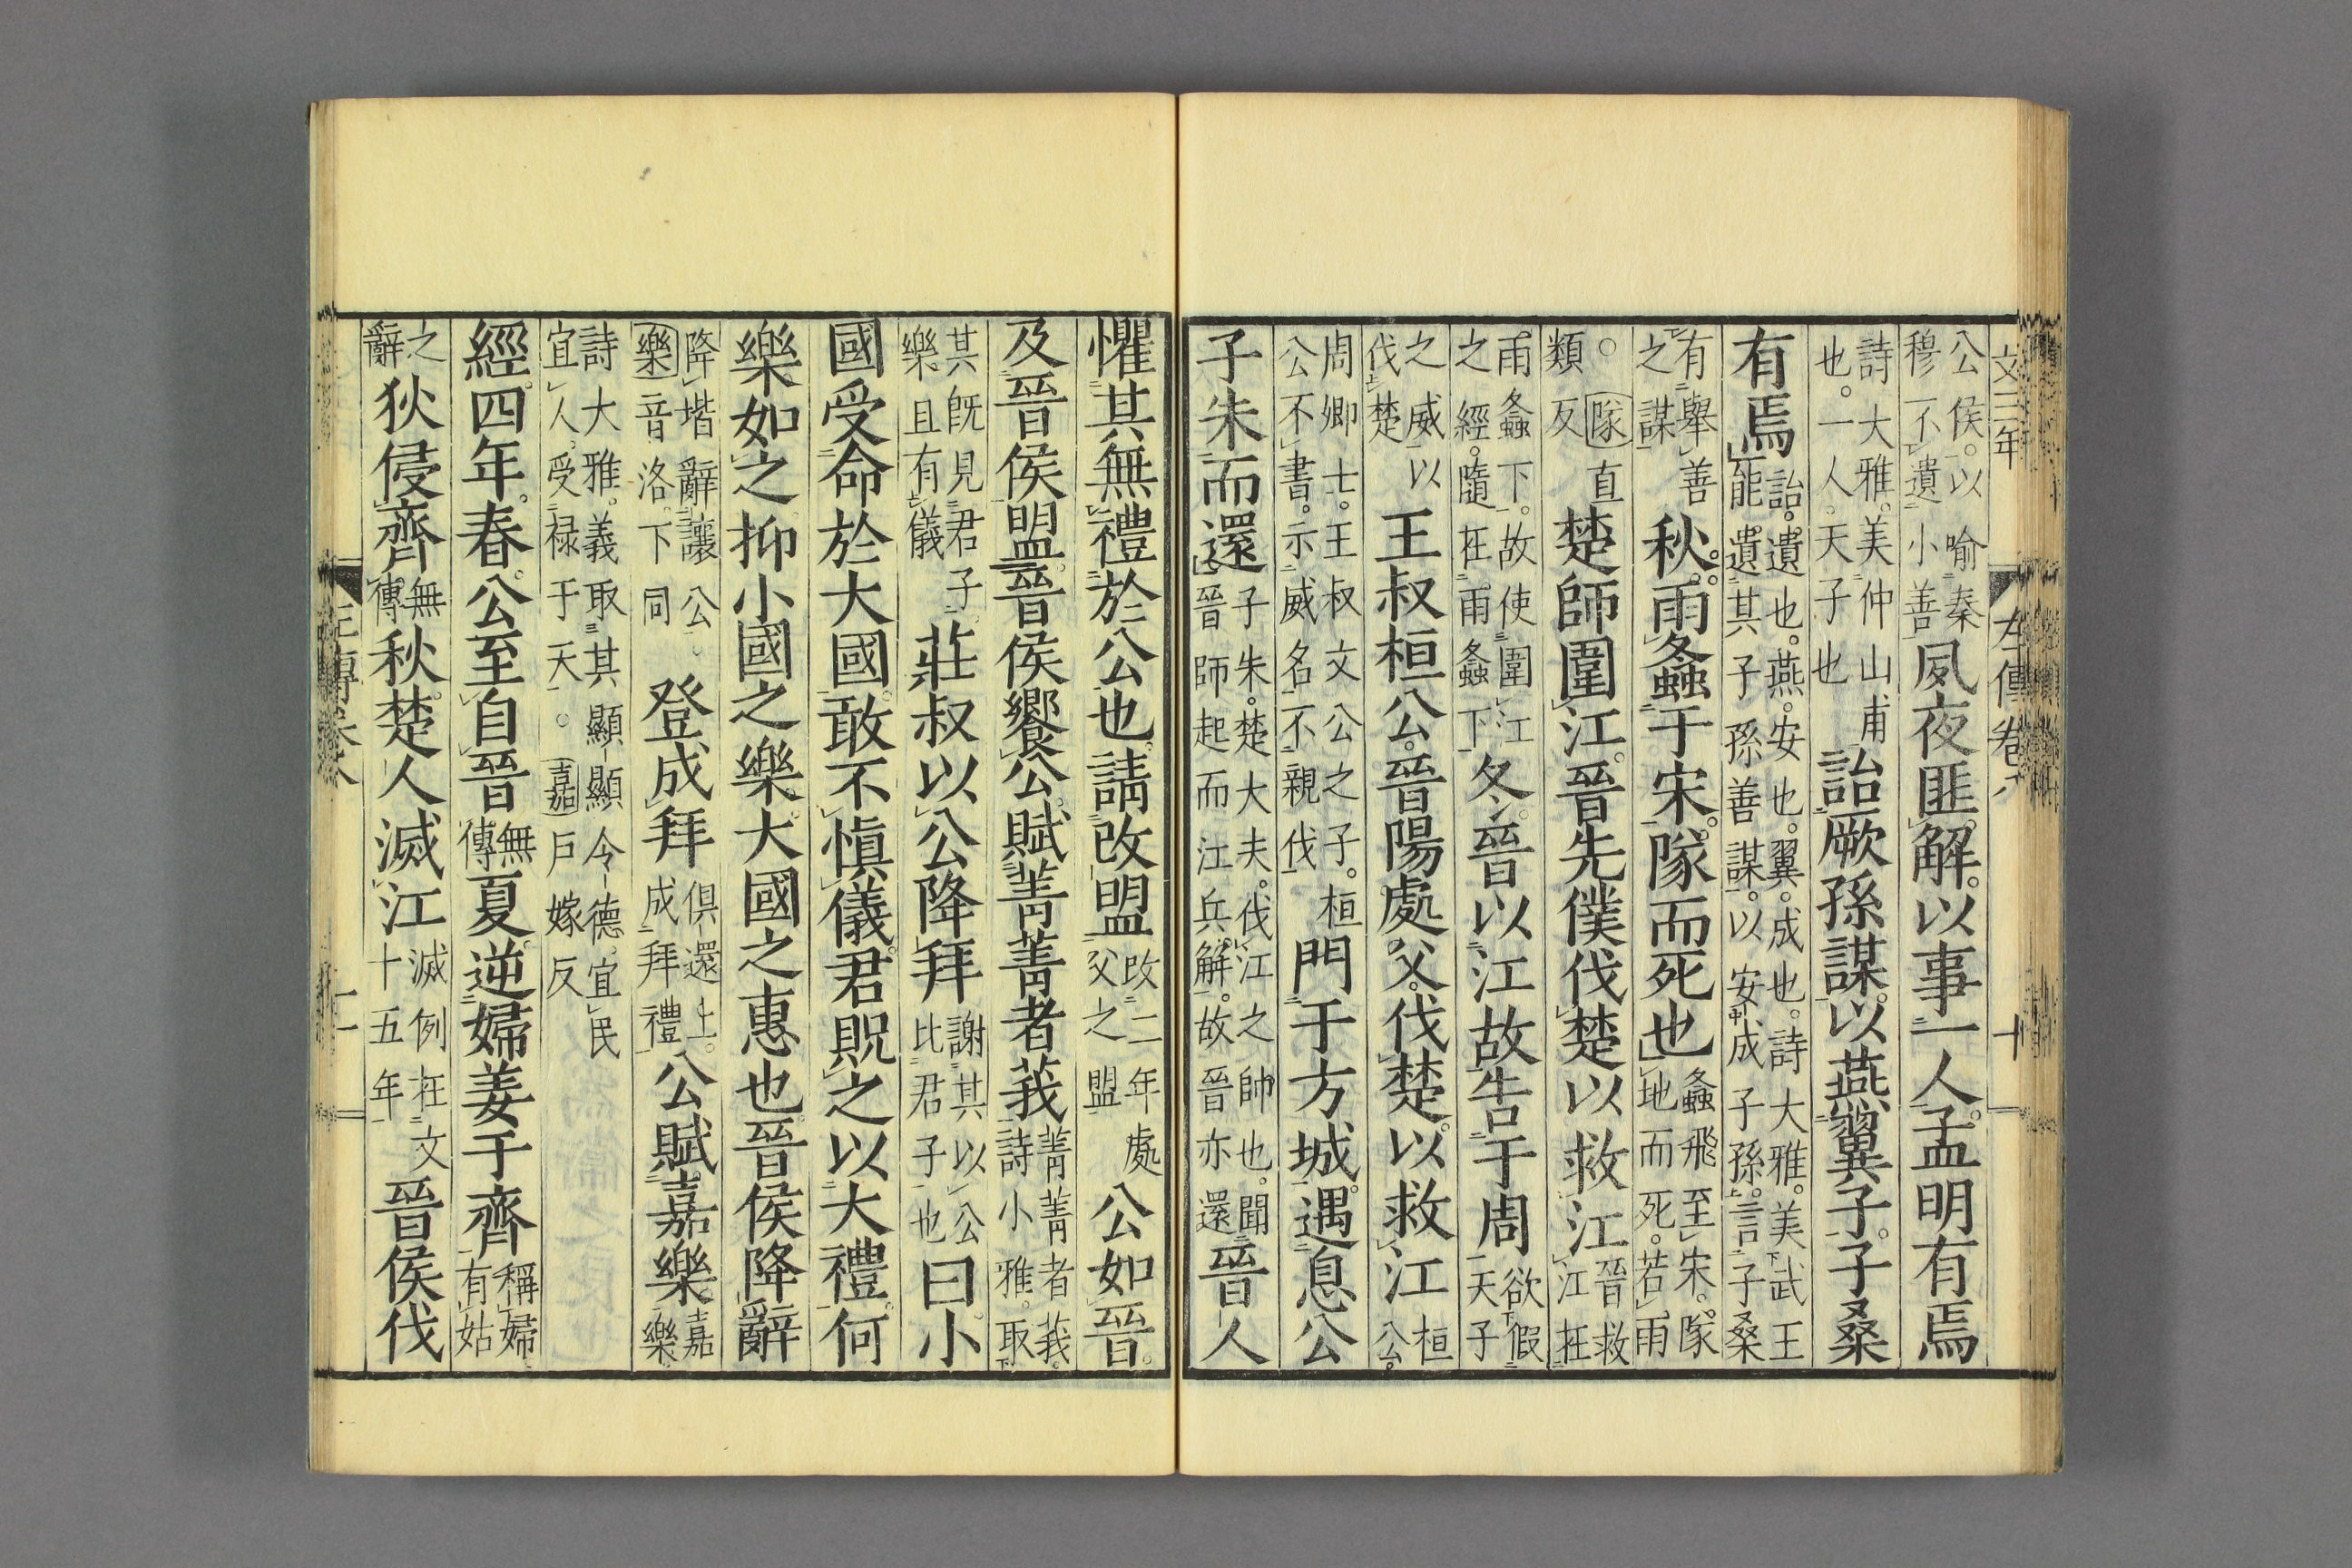 文三年 左傳卷八 十
公侯。以喻秦穆不遺小善夙夜匪解。以事一人。孟明有焉
詩大雅。美仲山甫也。一人。天子也詒厥孫謀。以燕翼子。子桑
有焉詒。遺也。燕。安也。翼。成也。詩大雅。美武王能遺其子孫善謀。以安成子孫。言子桑
有舉善之謀秋。雨螽于宋。隊而死也螽飛至宋。隊地而死。若雨
。隊直類反楚師圍江。晉先僕伐楚以救江晉救江在
雨螽下。故使圍江之經。隨在雨螽下冬。晉以江故告于周欲假天子
之威以伐楚王叔桓公。晉陽處父。伐楚。以救江桓公。
周卿士。王叔文公之子。桓公不書。示威名不親伐門于方城。遇息公
子朱而還子朱。楚大夫。伐江之帥也。聞晉師起而江兵解。故晉亦還晉人
懼其無禮於公也。請改盟改二年處父之盟公如晉。
及晉侯盟。晉侯饗公。賦菁菁者莪菁菁者莪。詩小雅。取
其既見君子。樂且有儀莊叔以公降拜謝其以公比君子也曰。小
國受命於大國。敢不慎儀。君貺之以大禮。何
樂如之。抑小國之樂。大國之惠也。晉侯降辭
降堦辭讓公。樂音洛。下同登成拜俱還上。成拜禮公賦嘉樂。嘉樂。
詩大雅。義取其顯顯令德。宜民宜人。受祿于天。。嘉戶嫁反
經。四年。春。公至自晉無傳夏。逆婦姜于齊稱婦有姑
之辭狄侵齊無傳秋。楚人滅江滅例在文十五年晉侯伐
左傳卷八 十一